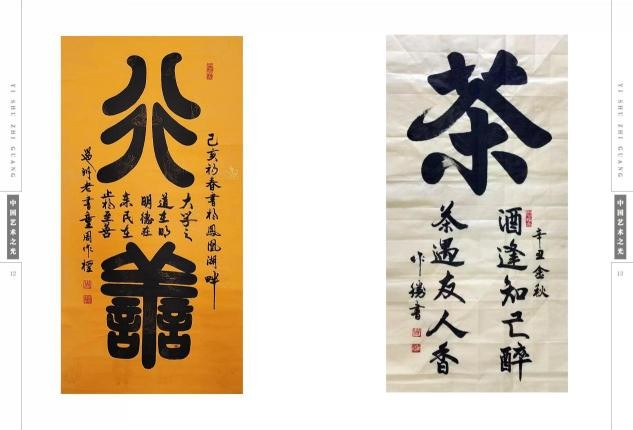 YI SHU ZHI GUANG
中国艺术之光
12
行
善
己亥初春書於鳳凰湖畔
大学之
道在明
明德在
亲民在
止於至善
老書童周作
茶
辛丑金秋
酒逢知己醉
茶遇友人香
作 書
YI SHU ZHI GUANG
中国艺术之光
13